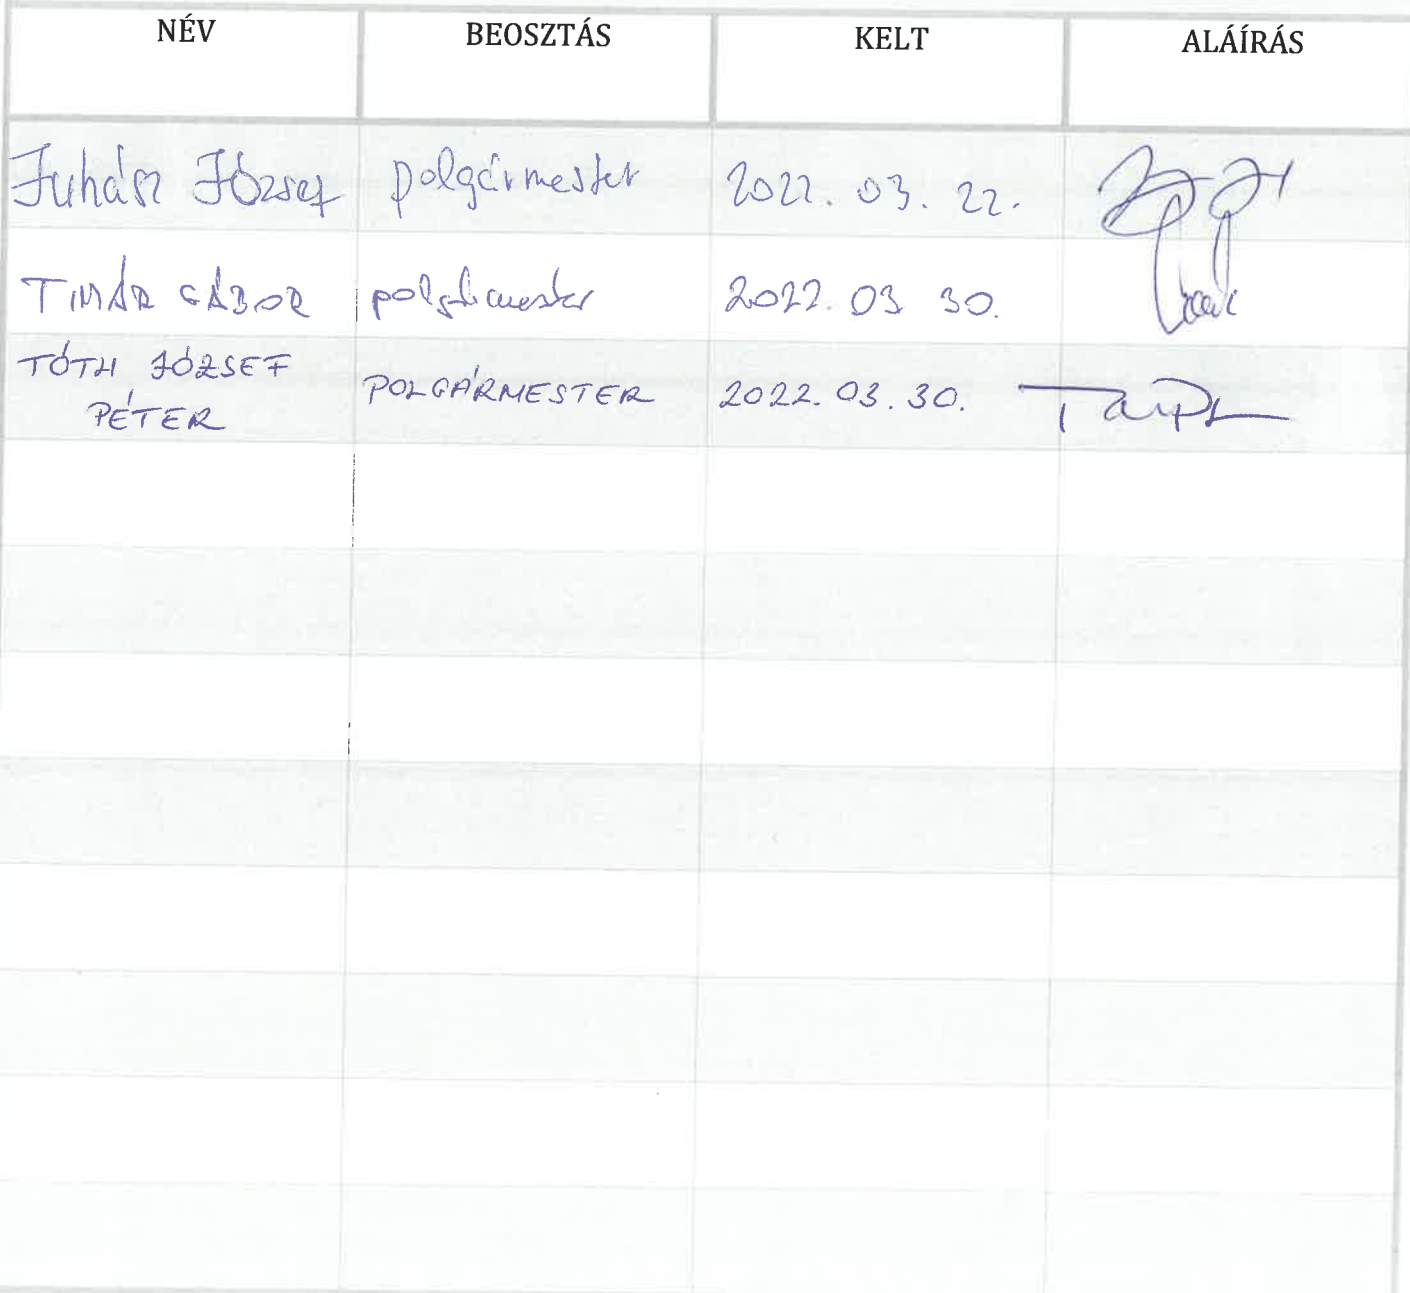 NÉV BEOSZTÁS KELT ALÁÍRÁS
Juhász József polgármester 2022. 03. 22.
TIMÁR GÁBOR polgármester 2022. 03 30.
TÓTH JÓZSEF
PÉTER POLGÁRMESTER 2022. 03. 30.